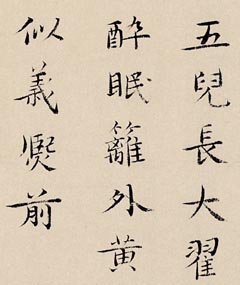 五兒長大翟
醉眠籬外黄
似義熙前